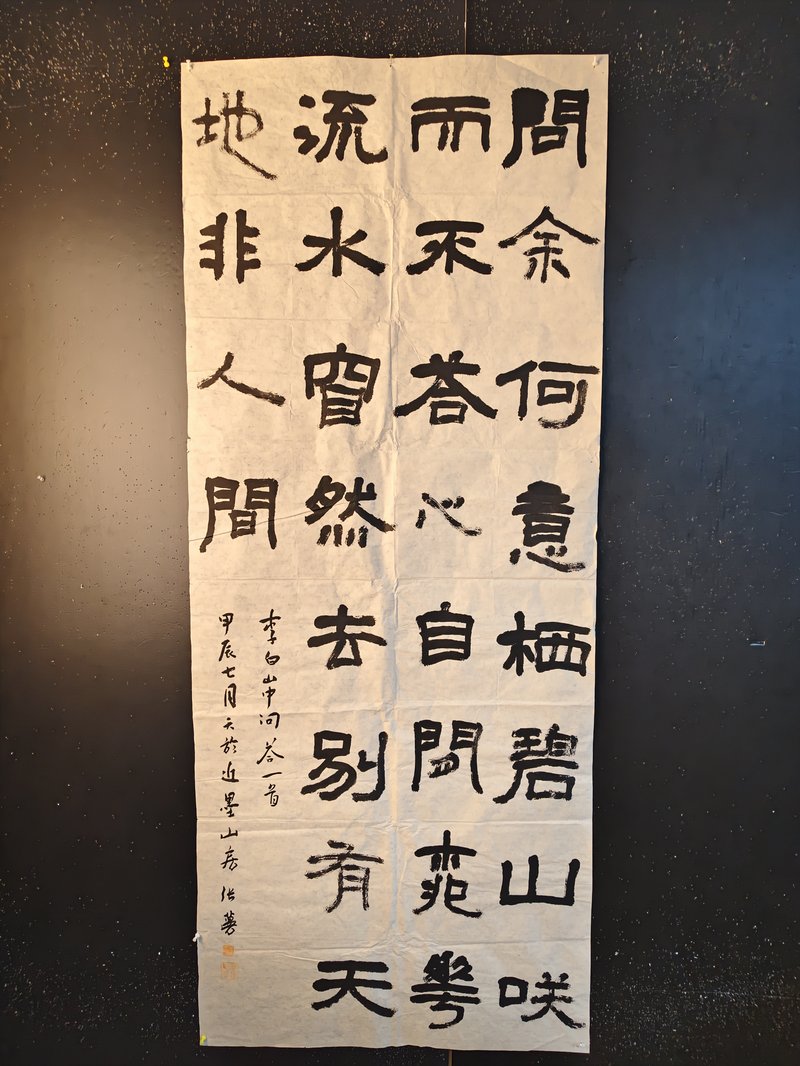 問余何意栖碧山咲
而不荅心自閑桃華
流水窅然去別有天
地非人間
李白山中问答一首
甲辰七月於近墨山房张